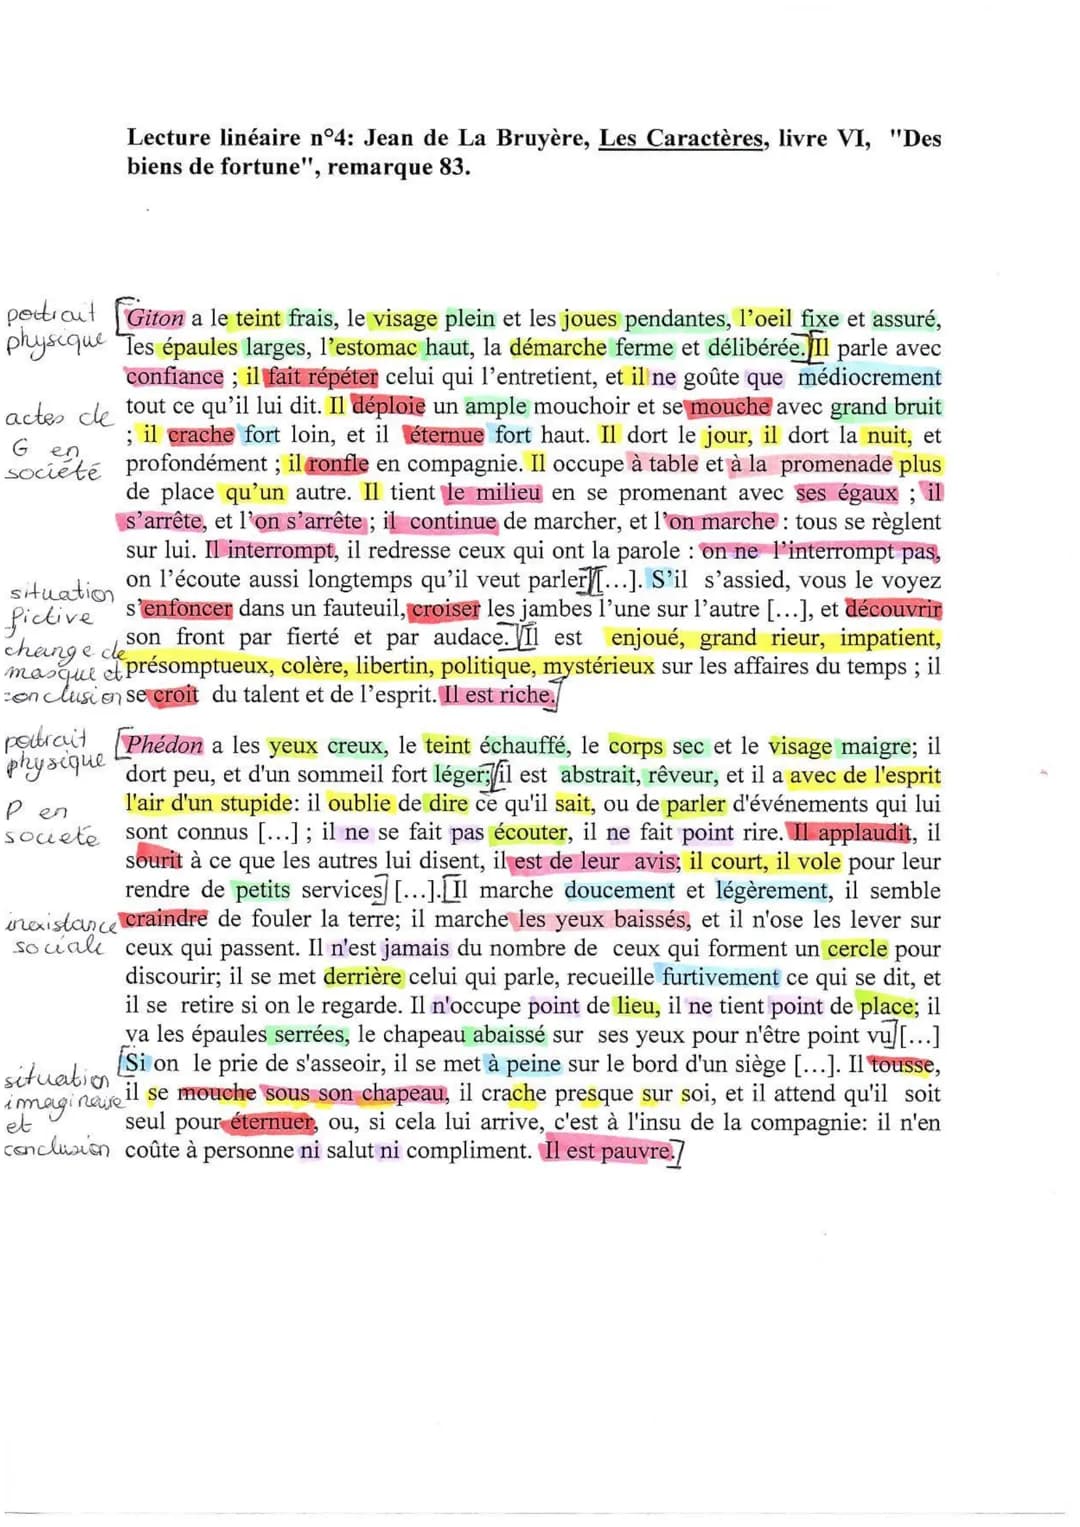 Lecture linéaire n°4: Jean de La Bruyère, Les Caractères, livre VI, "Des
biens de fortune", remarque 83.
portrait
physique
Giton a le teint frais, le visage plein et les joues pendantes, l'oeil fixe et assuré,
les épaules larges, l'estomac haut, la démarche ferme et délibérée. Il parle avec
confiance ; il fait répéter celui qui l'entretient, et il ne goûte que médiocrement
tout ce qu'il lui dit. Il déploie un ample mouchoir et se mouche avec grand bruit
; il crache fort loin, et il éternue fort haut. Il dort le jour, il dort la nuit, et
profondément ; il ronfle en compagnie. Il occupe à table et à la promenade plus
de place qu'un autre. Il tient le milieu en se promenant avec ses égaux ; il
s'arrête, et l'on s'arrête ; il continue de marcher, et l'on marche : tous se règlent
sur lui. Il interrompt, il redresse ceux qui ont la parole : on ne l'interrompt pas,
on l'écoute aussi longtemps qu'il veut parler [...]. S'il s'assied, vous le voyez
s'enfoncer dans un fauteuil, croiser les jambes l'une sur l'autre [...], et découvrir
son front par fierté et par audace. Il est enjoué, grand rieur, impatient,
présomptueux, colère, libertin, politique, mystérieux sur les affaires du temps ; il
se croit du talent et de l'esprit. Il est riche.
actes de
G en
société
situation
fictive
change de
masque et
conclusion
portrait
physique
Phédon a les yeux creux, le teint échauffé, le corps sec et le visage maigre; il
dort peu, et d'un sommeil fort léger; il est abstrait, rêveur, et il a avec de l'esprit
l'air d'un stupide: il oublie de dire ce qu'il sait, ou de parler d'événements qui lui
sont connus [...] ; il ne se fait pas écouter, il ne fait point rire. Il applaudit, il
sourit à ce que les autres lui disent, il est de leur avis; il court, il vole pour leur
rendre de petits services [...]. Il marche doucement et légèrement, il semble
craindre de fouler la terre; il marche les yeux baissés, et il n'ose les lever sur
ceux qui passent. Il n'est jamais du nombre de ceux qui forment un cercle pour
discourir; il se met derrière celui qui parle, recueille furtivement ce qui se dit, et
il se retire si on le regarde. Il n'occupe point de lieu, il ne tient point de place; il
va les épaules serrées, le chapeau abaissé sur ses yeux pour n'être point vu [...]
Si on le prie de s'asseoir, il se met à peine sur le bord d'un siège [...]. Il tousse,
il se mouche sous son chapeau, il crache presque sur soi, et il attend qu'il soit
seul pour éternuer, ou, si cela lui arrive, c'est à l'insu de la compagnie: il n'en
coûte à personne ni salut ni compliment. Il est pauvre.
P en
société
inexistance
sociale
situation
imaginaire
et
conclusion